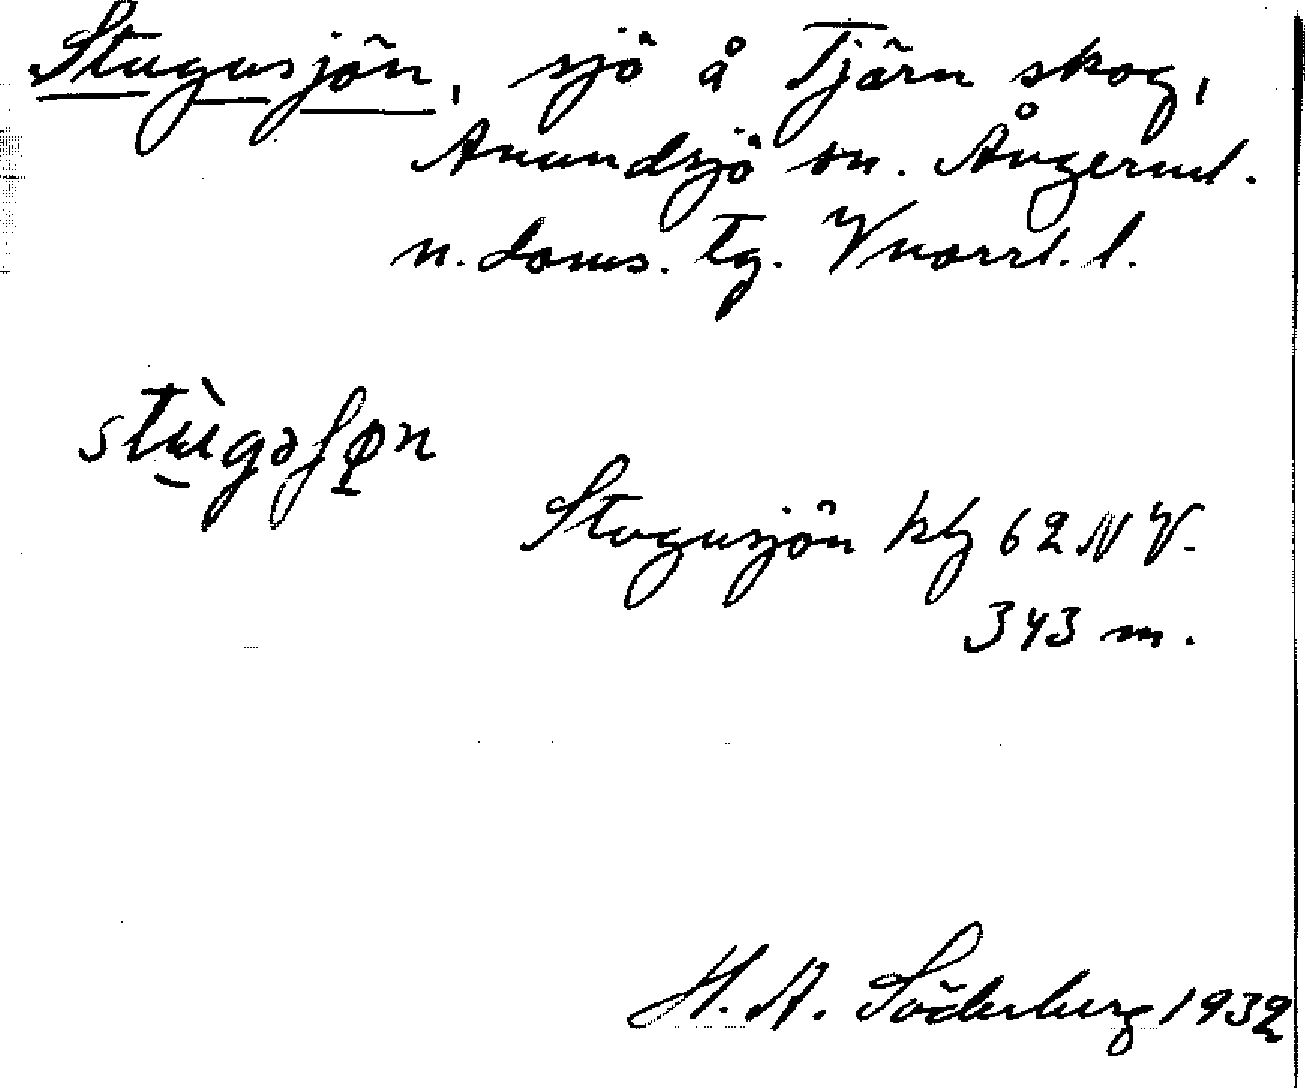 Stugusjön, sjö å Tjärn skog,
Anundsjö sn. Ångerml.
n. doms. tg. Vnorrl. l.
stùgəʃøn
Stugusjön kbl 62 NV.
343 m.
H. A. Söderberg 1932